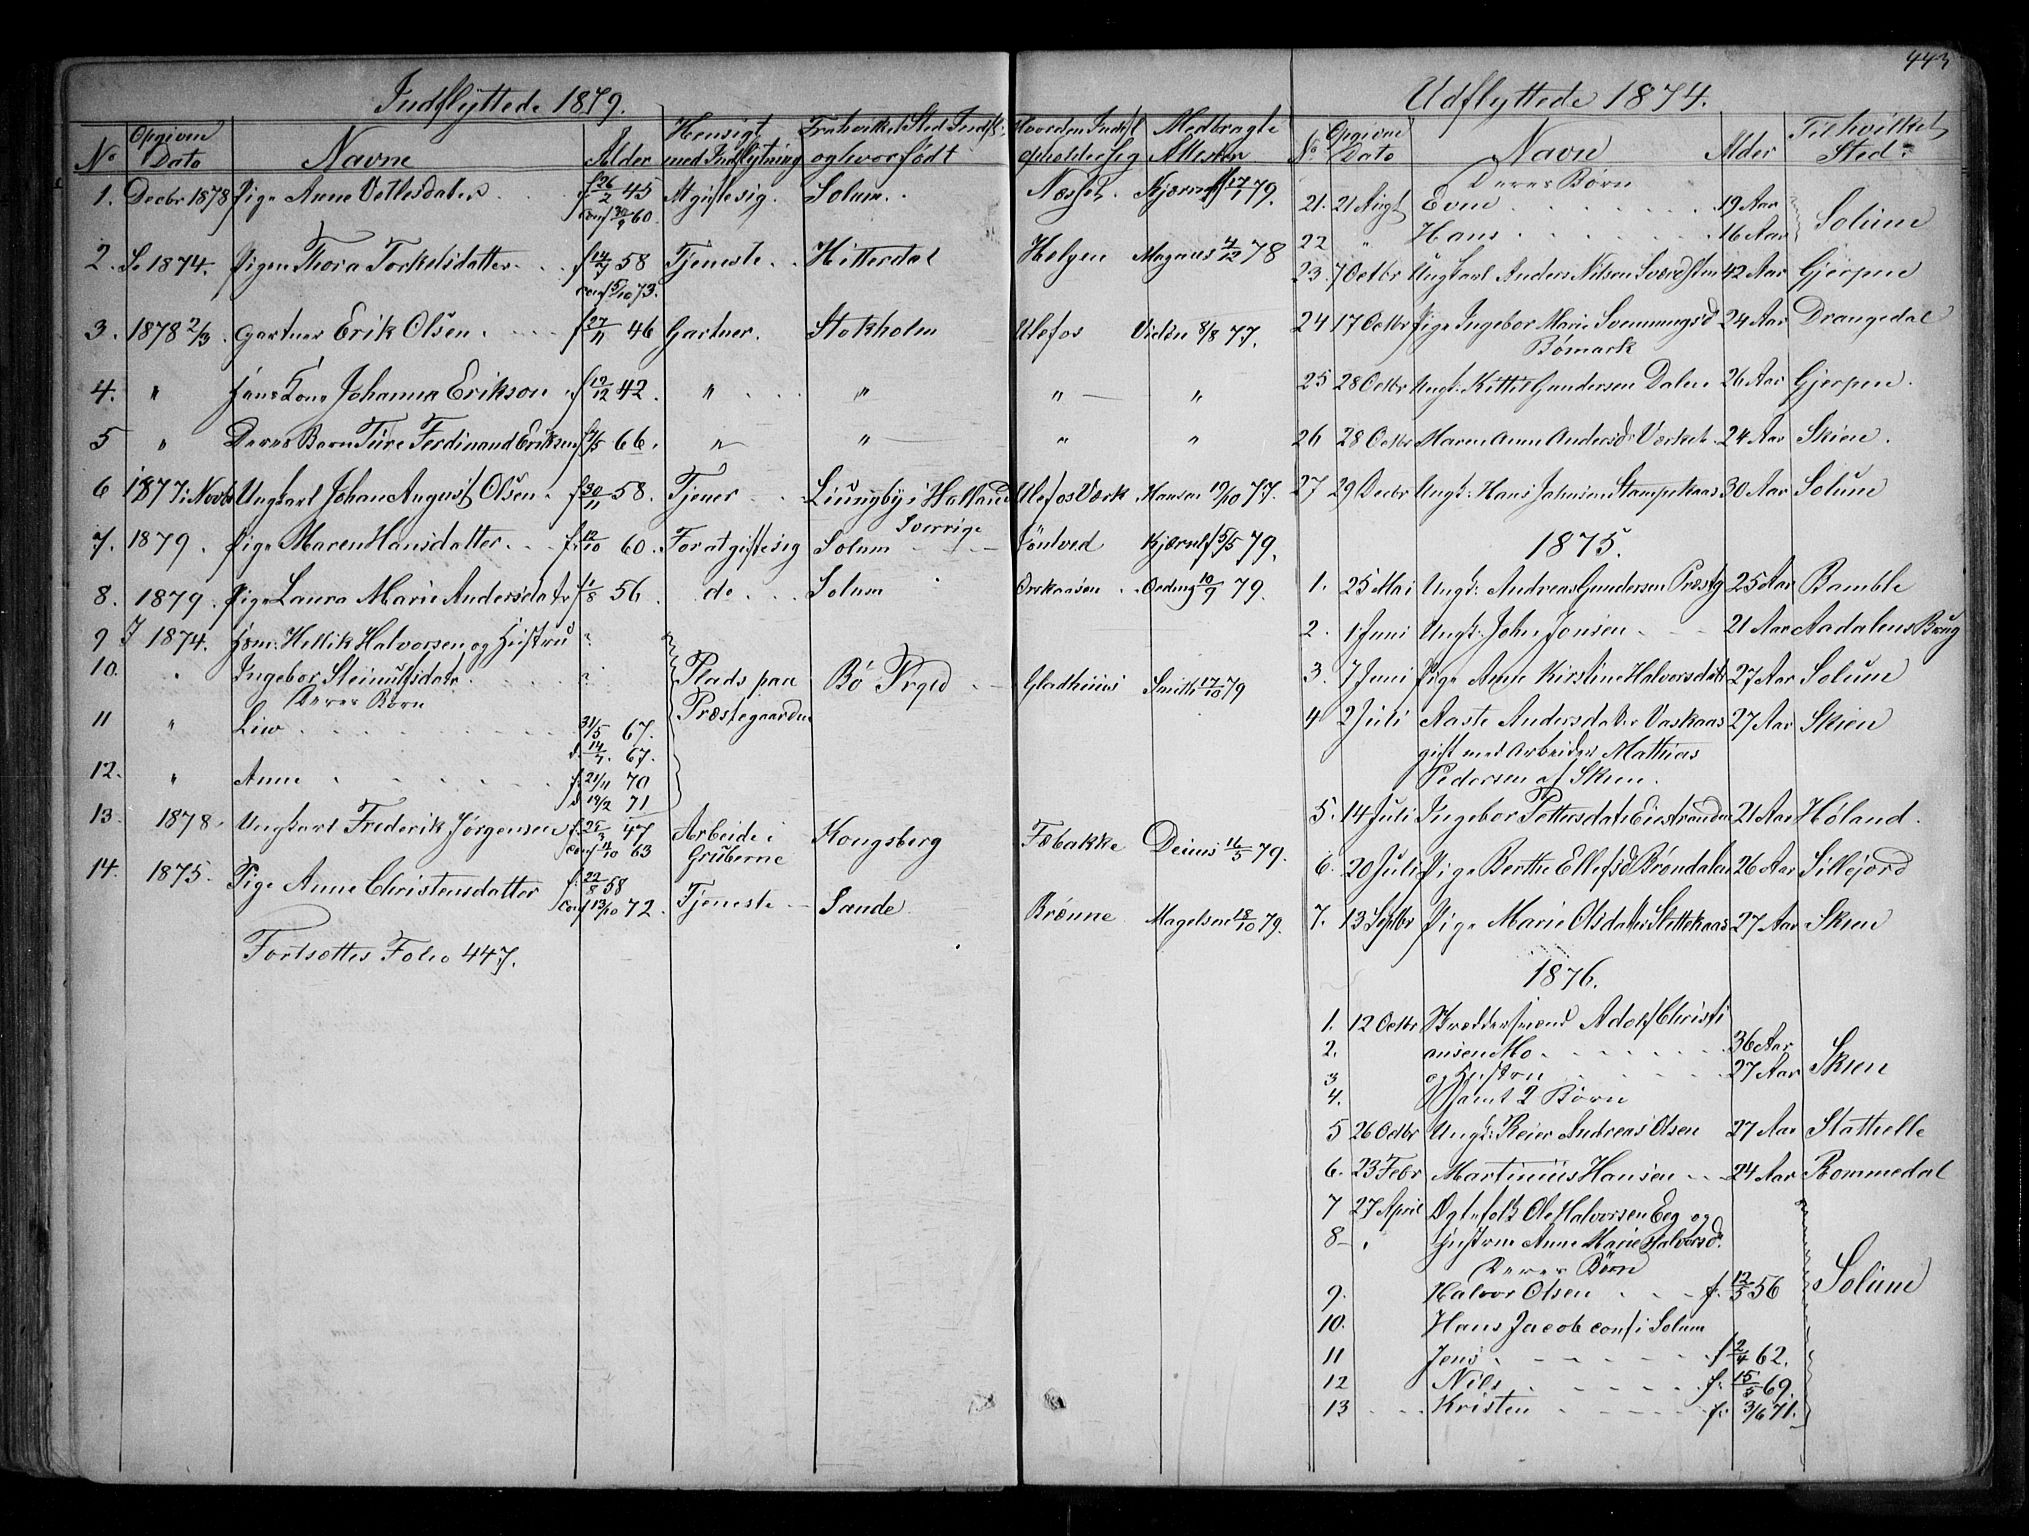 443
Indflyttede 1879.
No Opgiven Dato Navne Alder Hensigt med Indflytning Fra hvilket Sted Indfl. og hvor født Hvor den Indfl. opholder sig Medbragte Attester
1. Decbr 1878 Pige Anne Vetlesdatter f 26/2 45 At gifte sig. Solum. Næset. Kjærulf 17/1 79.
conf 30/9 60.
2. So 1874. Pigen Thora Torkelsdatter f 14/7 58 Tjeneste Hitterdal Helgen Magnus 4/12 78
conf 5/10 73.
3. 1878 2/3 Gartner Erik Olsen f 27/11 46 Gartner. Stokholm Ulefos Vidén 8/8 77.
4. " hans Kone Johanna Erikson f 12/12 42. " " " "
5 " Deres Barn Ture Ferdinand Eriksen f 4/5 66. " " " "
6 1877 i Novbr Ungkarl Johan August Olsen f 30/11 58. Tjener Liungby i Halland Ulefos Værk Hansen 19/10 77.
Sverrige
7. 1879. Pige Maren Hansdatter f. 12/10 60. For at gifte sig Solum Kjærulf 5/5 79.
8. 1879. Pige Laura Marie Andersdatr f 1/8 56. do Solum Oeding 10/9 79.
9 I 1874. Hsm: Hellik Halvorsen og Hustru ?
10. " Ingebor Steinulfsdatr ? Plads paa Præstegaarden Bø Prgld Gladhuus Smith 17/10 79
Deres Børn
11 " Liw 31/5 67.
d. 14/7. 67.
12. " Anne f: 21/11 70
d 19/2 71
13. 1878. Ungkarl Frederik Jørgensen f. 25/3 47 Arbeide i Gruberne Kongsberg Fæbakke Deinus 16/5 79.
conf 11/10 63
14. 1875. Pige Anne Christensdatter f: 22/8 58
conf 13/10 72. Tjeneste Sande Brenne Magelsen 18/10 79.
Fortsættes Folio 447.
Udflyttede 1874.
No Opgivne Dato Navn Alder Til hvilket Sted.
Deres Børn
21. 21 Augt Even 19 Aar
22 " Hans 16 Aar Solum
23. 7 Octbr Ungkarl Anders Nilsen Sværdsten 42 Aar Gjerpen
24 17 Octbr Pige Ingebor Marie Svenningsd 24 Aar Drangedal
Bømark
25 28 Octbr Ungk: Kittil Gundersen Dalen 26 Aar Gjerpen.
26 28 Octbr Maren Anne Andersd: Værket 24 Aar Skien.
27 29 Decbr Ungk: Hans Johnsen Stampekaas 30 Aar Solum
1875.
1. 25 Mai Ungk: Andreas Gundersen Præstg 25 Aar Bamble
2. 1 Juni Ungk: John Jonsen 21 Aar Aadalens Brug
3. 7 Juni Pige Anne Kirstine Halvorsdatr 27 Aar Solum
4 2 Juli Aaste Andersdatter Vaskaas 27 Aar Skien
gift med Arbeider Mathias
Pedersen af Skien.
5. 14 Juli Ingebor Pettersdatr Eiestranden 21 Aar Høland.
6. 20 Juli Pige Berthe Ellefsd Brøndalen 26 Aar Silljord
7. 13 Septbr Pige Marie Olsdatter Stettekaas 27 Aar Skien
1876.
1. 12 Octbr Skreddersvend Adolf Christi
2. ansen Mo 36 Aar
3 og Hustru 27 Aar Skien
4. Samt 2 Børn
5 26 Octbr Ungk: Reier Andreas Olsen 27 Aar Stathelle
6. 23 Febr Martinius Hansen 24 Aar Rommedal
7 27 April Ægtefolk Ole Halvorsen Eeg og
8 " Hustrue Anne Marie Halvorsd.
Deres Børn
9. Halvor Olsen f: 12/5 56 Solum
10. Hans Jacob conf i Solum
11 Jens f 2/4 62.
12 Nils f: 15/5 69.
13 Kristen f: 3/6 71.